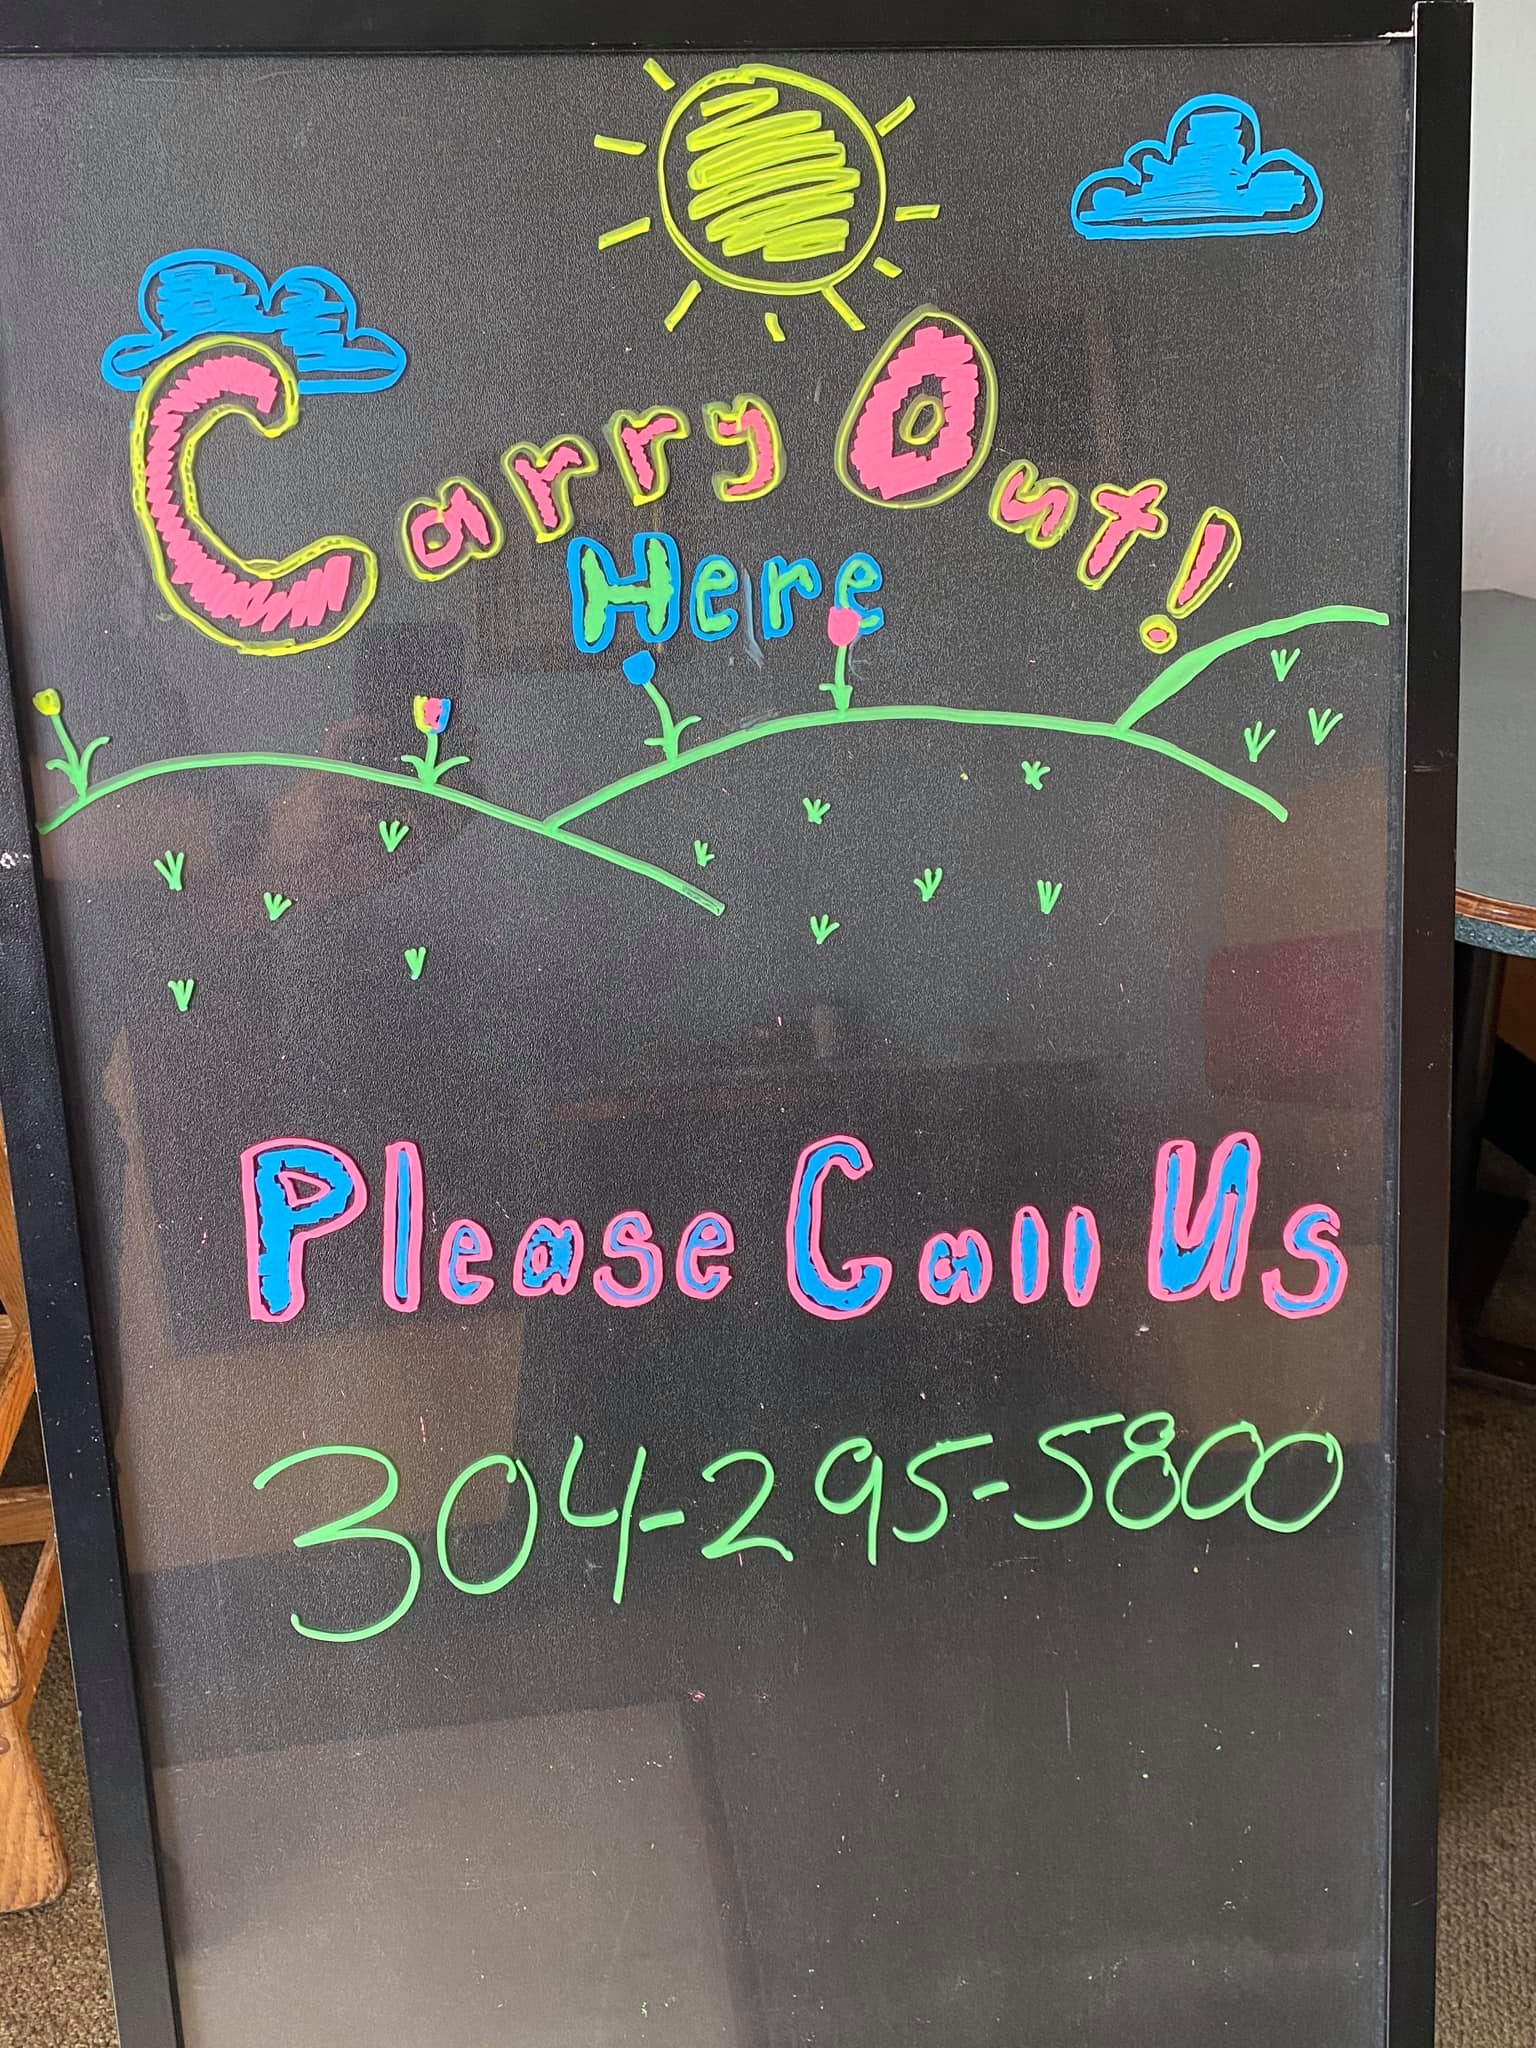 Carry Out!
Here
Please Call Us
304-295-5800